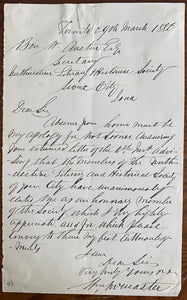 Toronto 29th March 1880
Ben W. Austin Esq
Secretary
Northwestern Library & Historical Society
Sioux City
Iowa
Dear Sir
Absence from home must be
my apology for not sooner answering
your esteemed letter of the 6th Inst advi-
sing that the members of the North-
western Library and Historical Society
of your City have unanimously
elected me as an honorary member
of the Society which I very highly
appreciate and for which please
convey to them my best acknowledg-
ments
I am
Dear Sir
Very truly yours
Wm McMaster